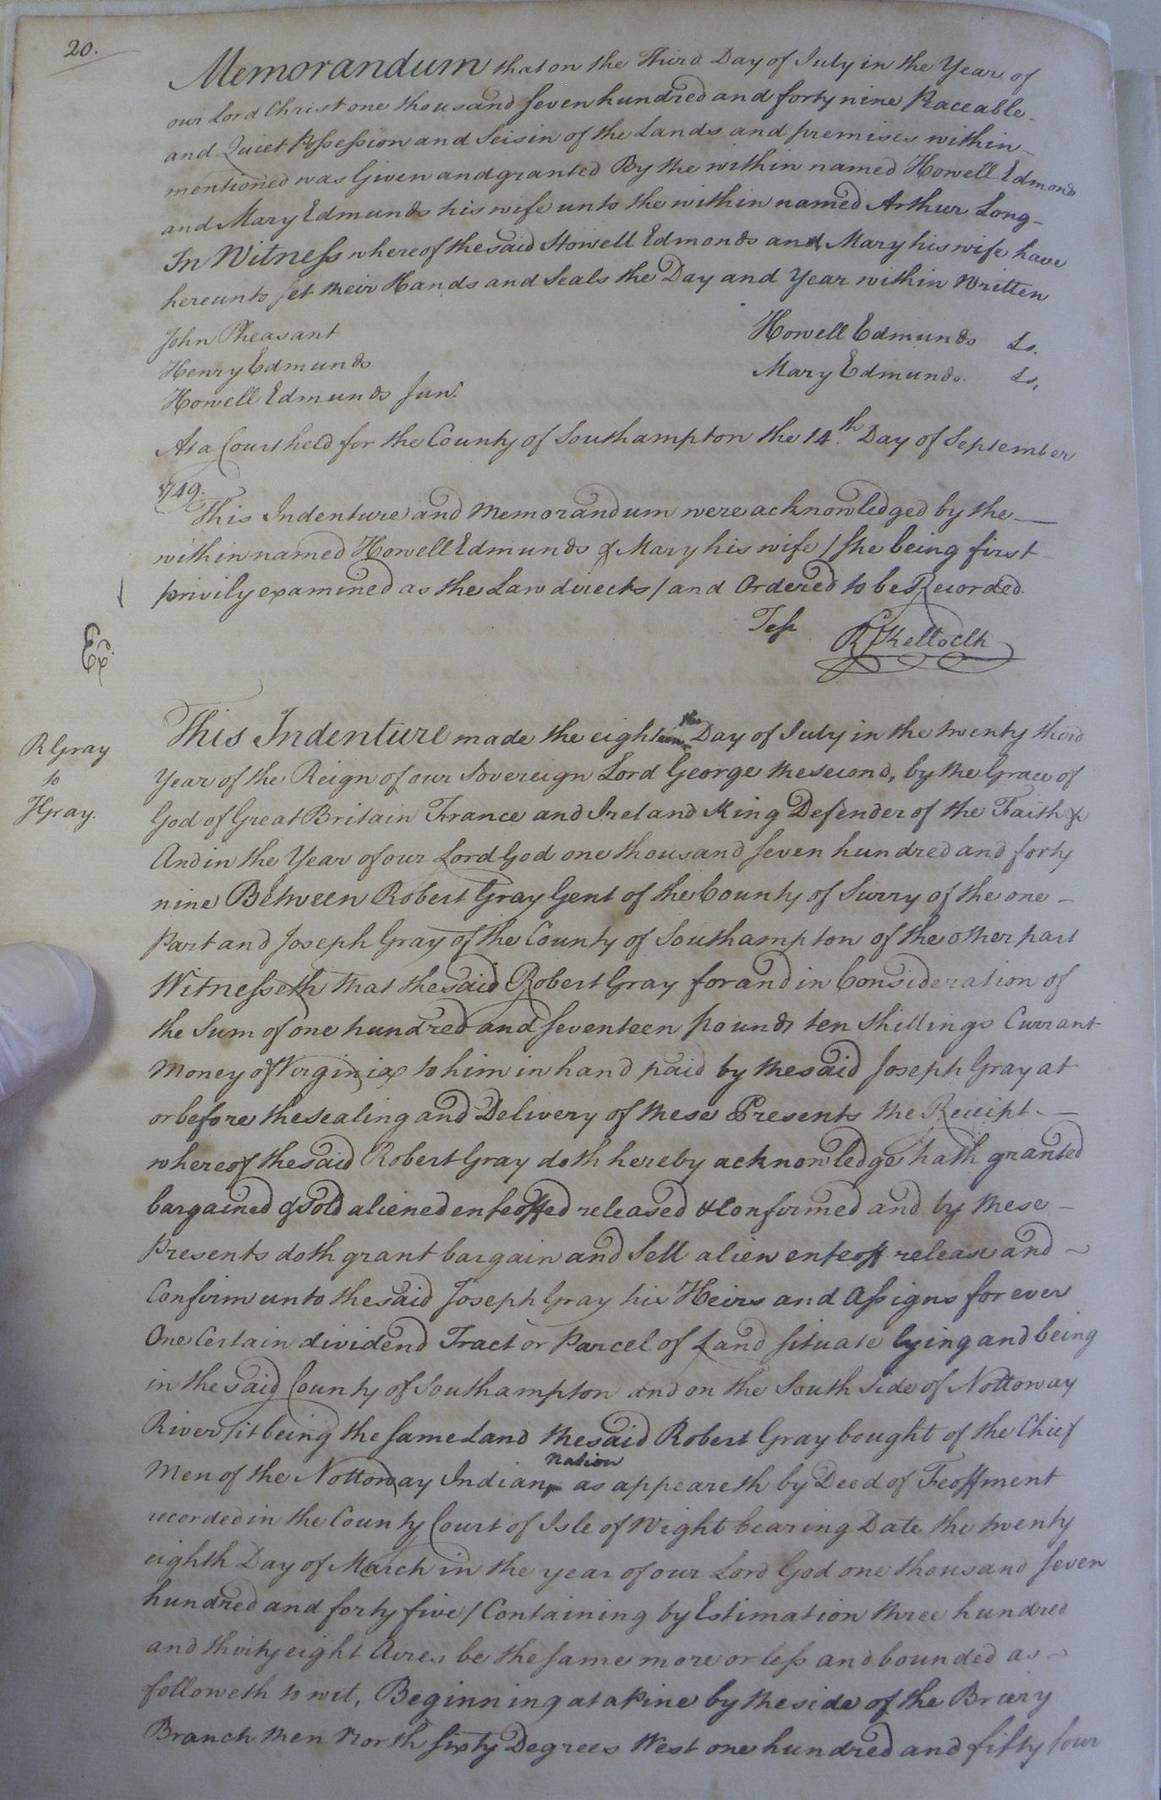 20.
Memorandum that on the Third Day of July in the Year of
our Lord Christ one thousand seven hundred and forty nine Peaceable
and Quiet Possession and Seisin of the Lands and premises within
mentioned was Given and granted By the within named Howell Edmonds
and Mary Edmunds his wife unto the within named Arthur Long
In Witness whereof the said Howell Edmonds and Mary his wife have
hereunto set their Hands and Seals the Day and Year within Written
John Pheasant Howell Edmunds Ls.
Henry Edmunds Mary Edmunds. Ls,
Howell Edmunds Junr.
At a Court held for the County of Southampton the 14.th Day of September
1749.
This Indenture and Memorandum were acknowledged by the
within named Howell Edmunds & Mary his wife / She being first
privily examined as the Law directs / and Ordered to be Recorded.
Test R Kello Clk
Ex.
R Gray
to
J Gray.
This Indenture made the eighth Day of July in the twenty third
Year of the Reign of our Sovereign Lord George the second, by the Grace of
God of Great Britain France and Ireland King Defender of the Faith &
And in the Year of our Lord God one thousand seven hundred and forty
nine Between Robert Gray Gent of the County of Surry of the one
Part and Joseph Gray of the County of Southampton of the other part
Witnesseth that the said Robert Gray for and in Consideration of
the Sum of one hundred and seventeen pounds ten Shillings Currant
Money of Virginia to him in hand paid by the said Joseph Gray at
or before the sealing and Delivery of these Presents the Receipt
whereof the said Robert Gray doth hereby acknowledge hath granted
bargained & sold aliened enfeoffed released & Confirmed and by these
Presents doth grant bargain and Sell alien enfeoff release and
Confirm unto the said Joseph Gray his Heirs and Assigns for ever
One Certain dividend Tract or Parcel of Land situate lying and being
in the said County of Southampton and on the South Side of Nottoway
River / it being the same Land the said Robert Gray bought of the Chief
Men of the Nottoway Indian nation as appeareth by Deed of Feoffment
recorded in the County Court of Isle of Wight bearing Date the twenty
eighth Day of March in the year of our Lord God one thousand seven
hundred and forty five / Containing by Estimation three hundred
and thirty eight Acres be the same more or less and bounded as
followeth to wit, Beginning at a Pine by the side of the Briery
Branch then North sixty Degrees West one hundred and fifty four